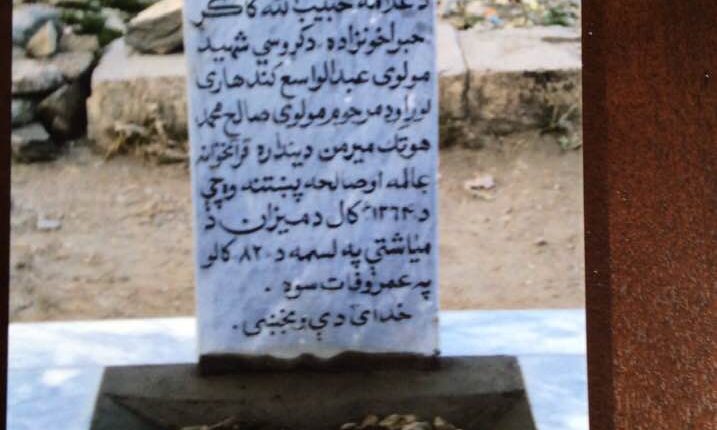 د علامه حبیب لله کاکړ
حبراخونزاده. دکروسي شهید
مولوي عبدالواسع کندهاري
لوراود مرحوم مولوي صالح محمد
هوتک میرمن دینداره قرآنخوانه
عالمه اوصالحه پښتنه وه چې
د ۱۳۶۴ کال د میزان د
میاشتې په لسمه د ۸۲۰ کالو
په عمر وفات سوه.
خدای دې وبخښي.